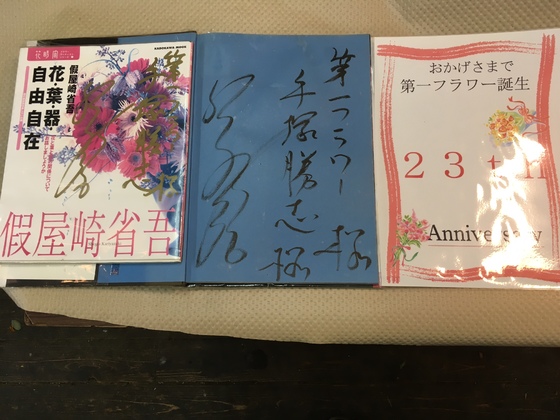 花時間
KADOKAWA MOOK
假屋崎省吾
花・葉・器
自由自在
假屋崎省吾
第一フラワー様
手塚勝志様
おかげさまで
第一フラワー誕生
23th
Anniversary